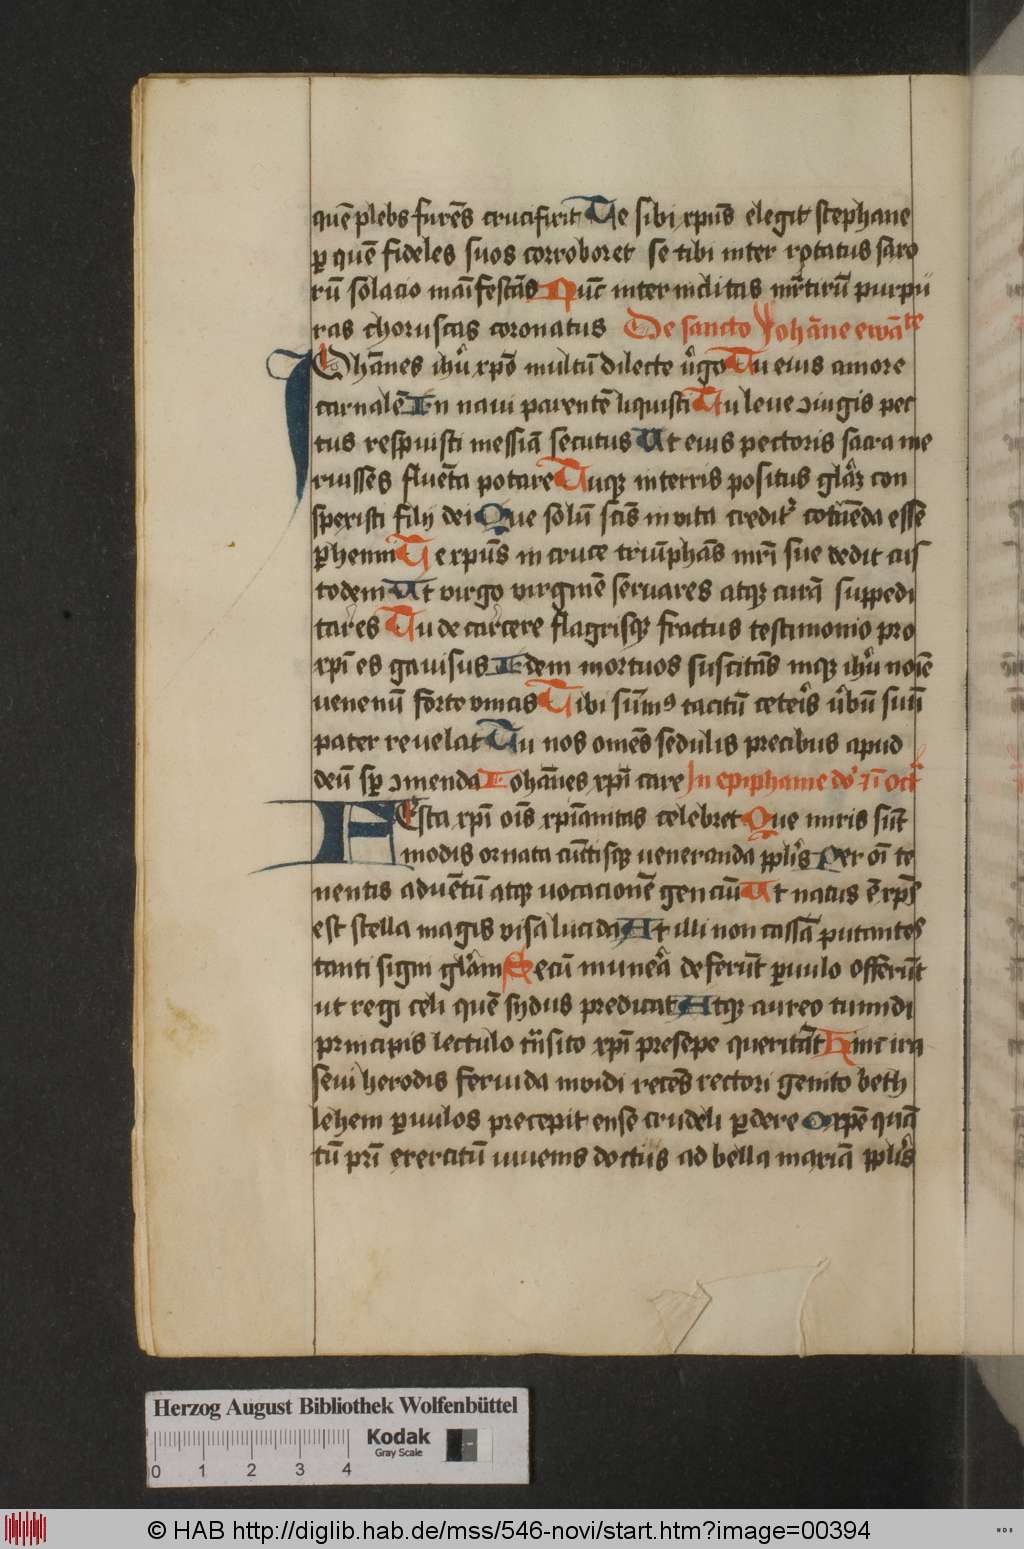 quē plebs furēs crucifixit Te sibi xpūs elegit stephane
ꝑ quē fideles suos corroboret se tibi inter rotatus saxo
rū solacio maīfestās Nūc inter inclitas mr̄tirū purpu
ras choruscas coronatus De sancto Johāne ewāˡᵗᵉ
Iohānes ihū xpō multū dilecte v̾go Tu eius amore
carnalē In naui parentē liquisti Tu leue ꝯiugis pec
tus respuisti messiā secutus Ut eius pectoris sacra me
ruisses fluēta potare Tuqꝫ in terris positus glāꝫ con
spexisti filij dei Que solū scīs in vita creditʳ cotuēda esse
ꝑhenni Te xpūs in cruce triūphās mr̄i sue dedit cus
todem Ut virgo virginē seruares atqꝫ curā suppedi
tares Tu de carcere flagrisqꝫ fractus testimonio pro
xpī es gauisus Idem mortuos suscitās inqꝫ ihū noīe
venenū forte vincis Tibi sūmꝰ tacitū ceteris v̾bū suū
pater reuelat Tu nos omēs sedulis precibus apud
deū sꝑ ꝯmenda Iohānes xpī care In epiphanie dō ⁊ ī oct̄
Festa xpī oīs xpīanitas celebret Que miris sūt
modis ornata cūctisqꝫ veneranda pplīs Per oī te
nentis aduētū atqꝫ vocacionē genciū Ut natus ē xpē
est stella magis visa lucida At illi non cassā putantes
tanti signi glām Secū munēa deferūt ꝑuulo offerūt
ut regi celi quē sydus predicat Atqꝫ aureo tumidi
principis lectulo trn̄sito xpī presepe queritāt Hinc ira
seui herodis feruida inuidi recēs rectori genito beth
lehem ꝑuulos precepit ense crudeli ꝑdere O xpē quā
tū pr̄i exercitū iuuenis doctus ad bella maxīā pplīs
Herzog August Bibliothek Wolfenbüttel
Kodak
Gray Scale
0 1 2 3 4
© HAB http://diglib.hab.de/mss/546-novi/start.htm?image=00394